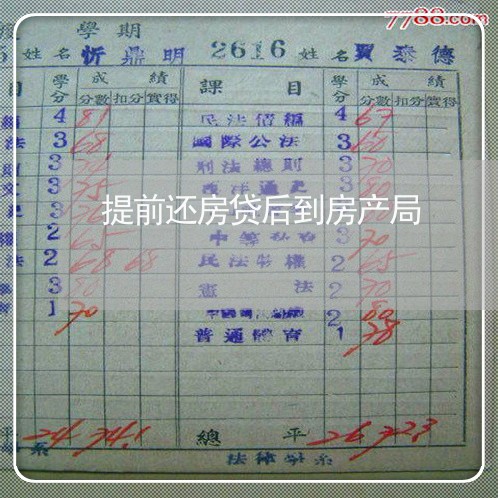 7788.com
學期
5 姓名 忻鼎明 2616 姓名 賈泰德
目 學分 成績 課目 學分 成績
分數 扣分 實得 分數 扣分 實得
4 81 民法債編 4 67
法 3 68 國際公法 3 60
3 刑法總則 3 70
3 75 西洋通史 3 80
提前还房贷后到房产局
權 2 65 3 70
法 2 68 68 民法物權 2 65
3 80 憲法 2 70
1 70 2 80
普通體育 1 78
平 24 74.1 總平 26 72.3
系 法律學系